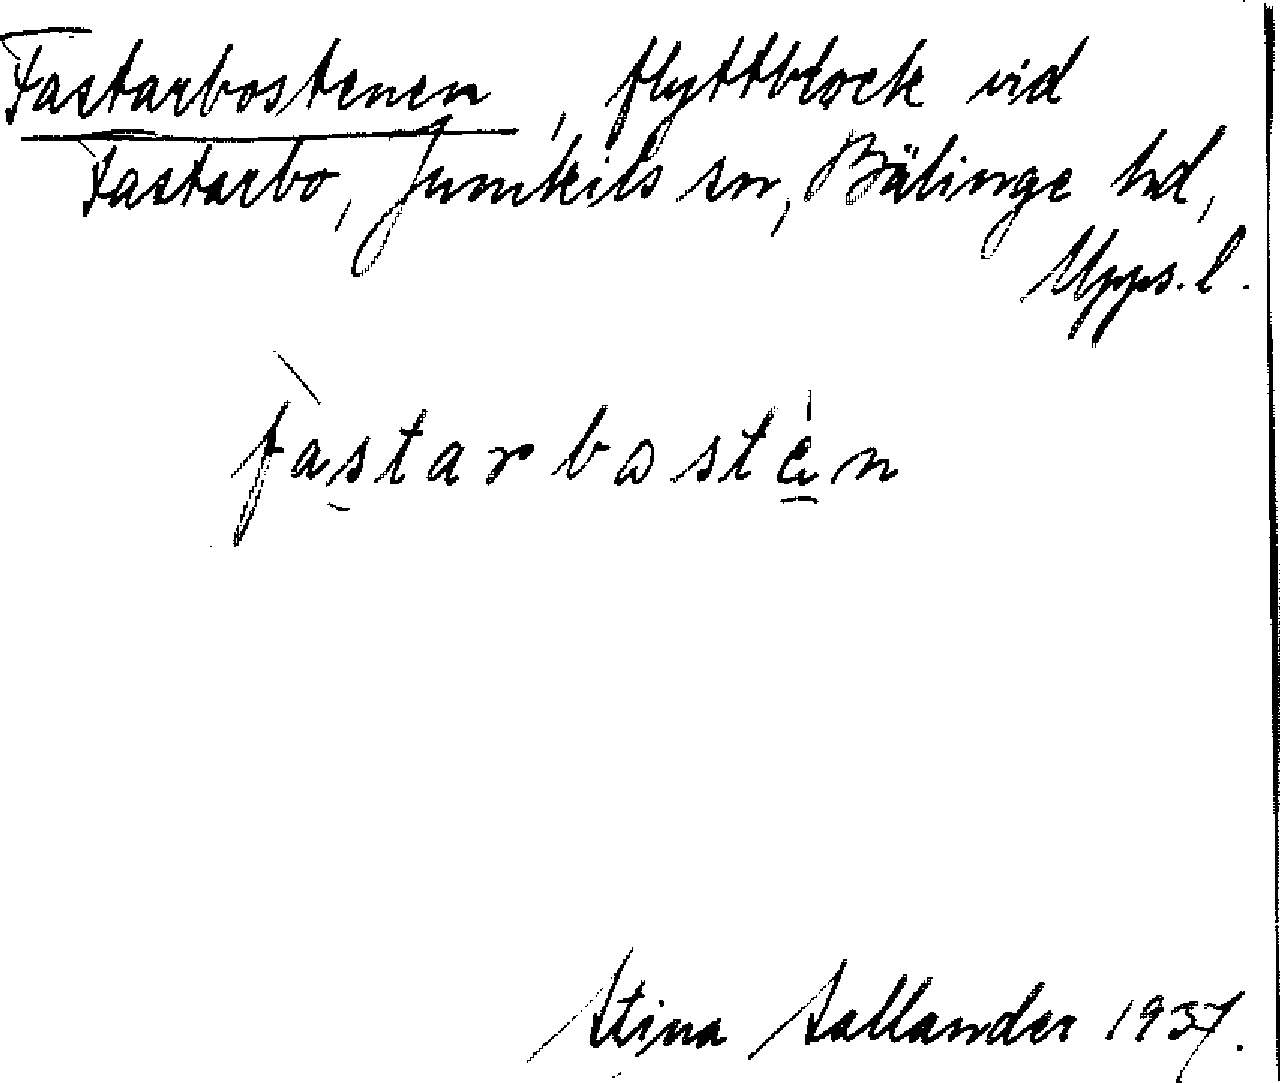 Fastarbostenen, flyttblock vid
Fastarbo, Jumkils sn, Bälinge hd,
Upps. l.
fàstarbosté̠n
Stina Sallander 1937.